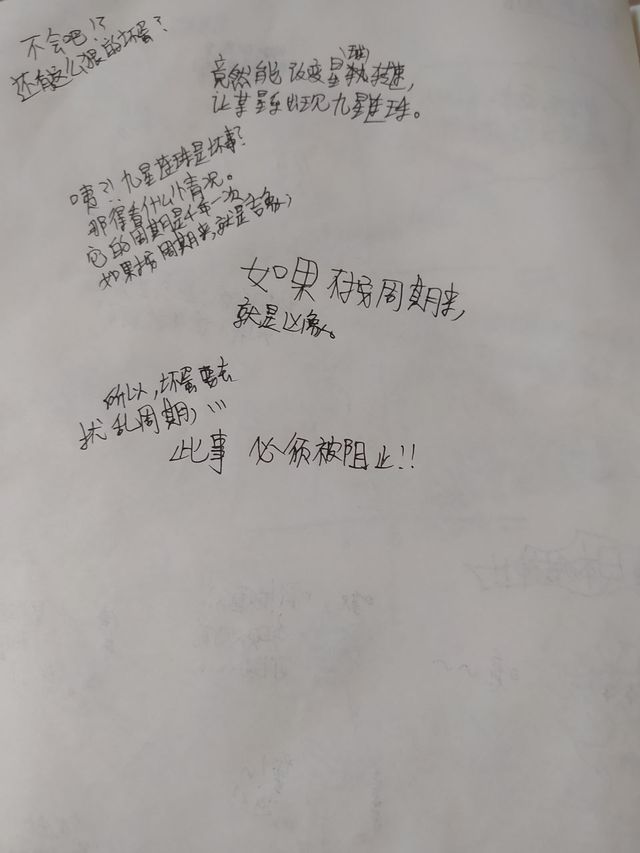 不会吧!?
还有这么狠的坏蛋?
竟然能改变星球转速,
让某星系出现九星连珠。
咦?! 九星连珠是坏事?
那得看什么情况。
它的周期是千年一次
如果按周期来,就是吉象,
如果不按周期来,
就是凶象。
所以,坏蛋要去
扰乱周期,…
此事 必须被阻止!!